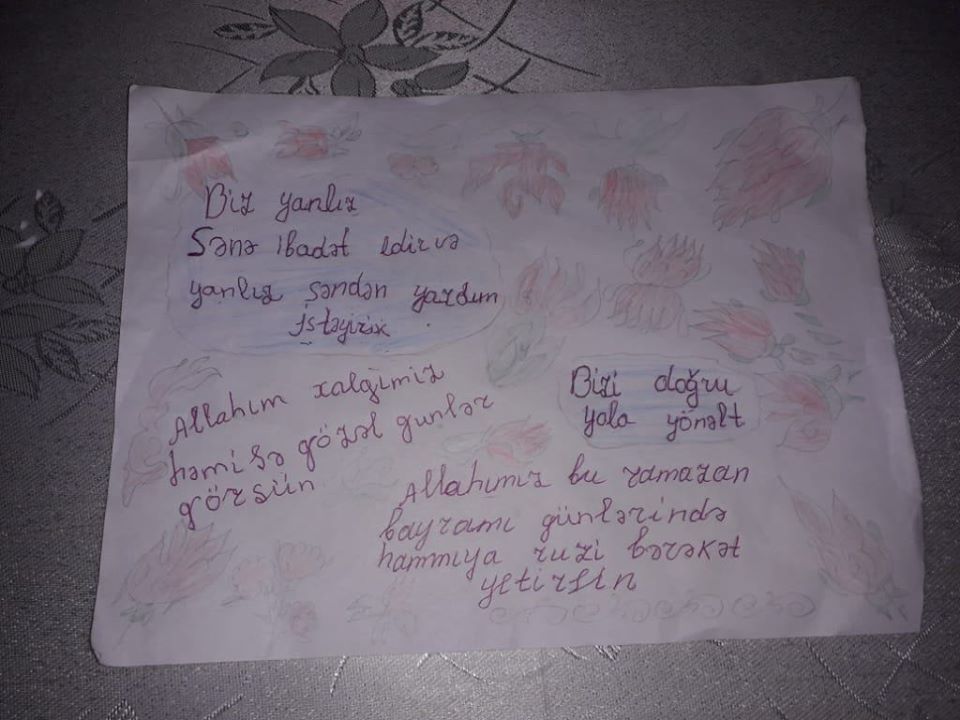 Biz yanlız
Sənə ibadət edir və
yanlız səndən yardım
istəyirik
Allahım xalgimiz
həmi şə gözəl gunlər
görsün
Bizi doğru
yola yönəlt
Allahımız bu ramazan
bayramı günlərində
hammıya ruzi bərəkət
yetirsin